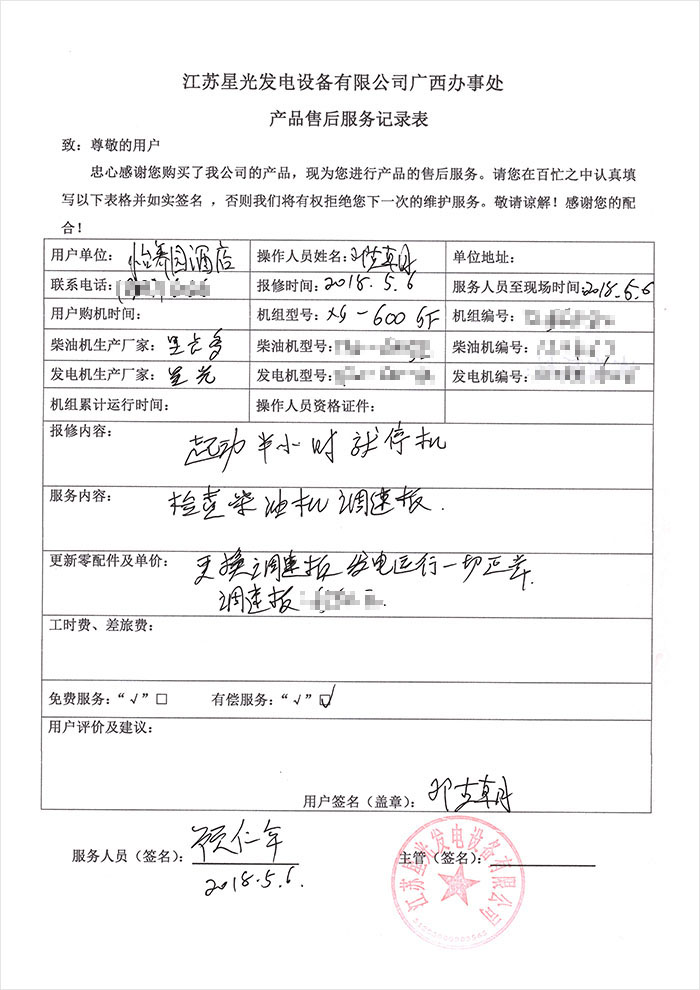 江苏星光发电设备有限公司广西办事处
产品售后服务记录表
致：尊敬的用户
忠心感谢您购买了我公司的产品，现为您进行产品的售后服务。请您在百忙之中认真填
写以下表格并如实签名 ，否则我们将有权拒绝您下一次的维护服务。敬请谅解！感谢您的配
合！
用户单位：怡景园酒店 操作人员姓名： 单位地址：
联系电话： 报修时间：2018.5.6 服务人员至现场时间：2018.5.6
用户购机时间： 机组型号：XG-600GF 机组编号：
柴油机生产厂家： 柴油机型号： 柴油机编号：
发电机生产厂家：星光 发电机型号： 发电机编号：
机组累计运行时间： 操作人员资格证件：
报修内容：
起动半小时就停机
服务内容：
检查柴油机调速板.
更新零配件及单价： 更换调速板 发电运行一切正常.
调速板
工时费、差旅费：
免费服务：“√”□ 有偿服务：“√”☑
用户评价及建议：
用户签名（盖章）：
服务人员（签名）：顾仁年 主管（签名）：
2018.5.6.
江苏星光发电设备有限公司